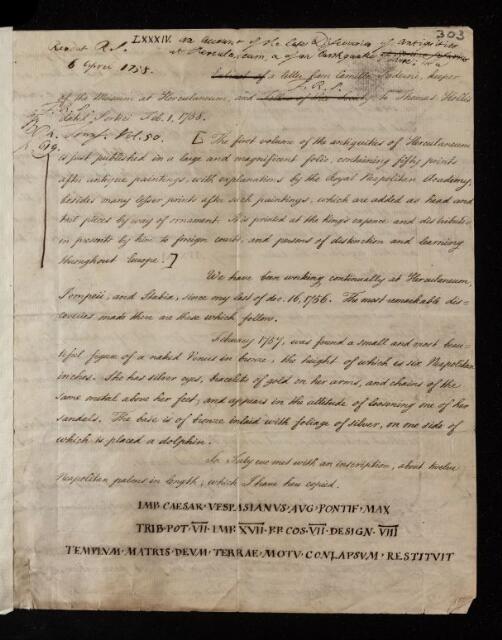 303
LXXXIV. an Account of the late Discoveries of Antiquities
at Herculaneum, & of an Earthquake there; in a
Read at R.S.
6 April 1758.
Extract of a letter from Camillo Paderni, keeper
of the Museum at Herculaneum, and to Thomas Hollis
F.R.S.
dated Portici Feb. 1, 1758.
Vol. 50.
[The first volume of the antiquities of Herculaneum
is just published in a large and magnificent folio, containing fifty prints
after antique paintings, with explanations by the Royal Neapolitan Academy,
besides many lesser prints after such paintings, which are added as head and
but pieces by way of ornament. It is printed at the King's expence and distributed
in presents by him to foreign courts, and persons of distinction and learning
throughout Europe.]
We have been working continually at Herculaneum,
Pompeii, and Stabia, since my last of dec. 16, 1756. The most remarkable dis-
coveries made there are these which follow.
February 1757, was found a small and most beau-
tiful figure of a naked Venus in bronze, the height of which is six Neapolitan
inches. She has silver eyes, bracelets of gold on her arms, and chains of the
same metal above her feet, and appears in the attitude of loosening one of her
sandals. The base is of bronze inlaid with foliage of silver, on one side of
which is placed a dolphin.
In July we met with an inscription, about twelve
Neapolitan palms in length, which I have here copied.
IMP CAESAR · VESPASIANVS · AVG · PONTIF · MAX
TRIB · POT · VII · IMP · XVII · P.P · COS · VII · DESIGN · VIII
TEMPLVM · MATRIS · DEVM · TERRAE · MOTV · CONLAPSVM · RESTITVIT